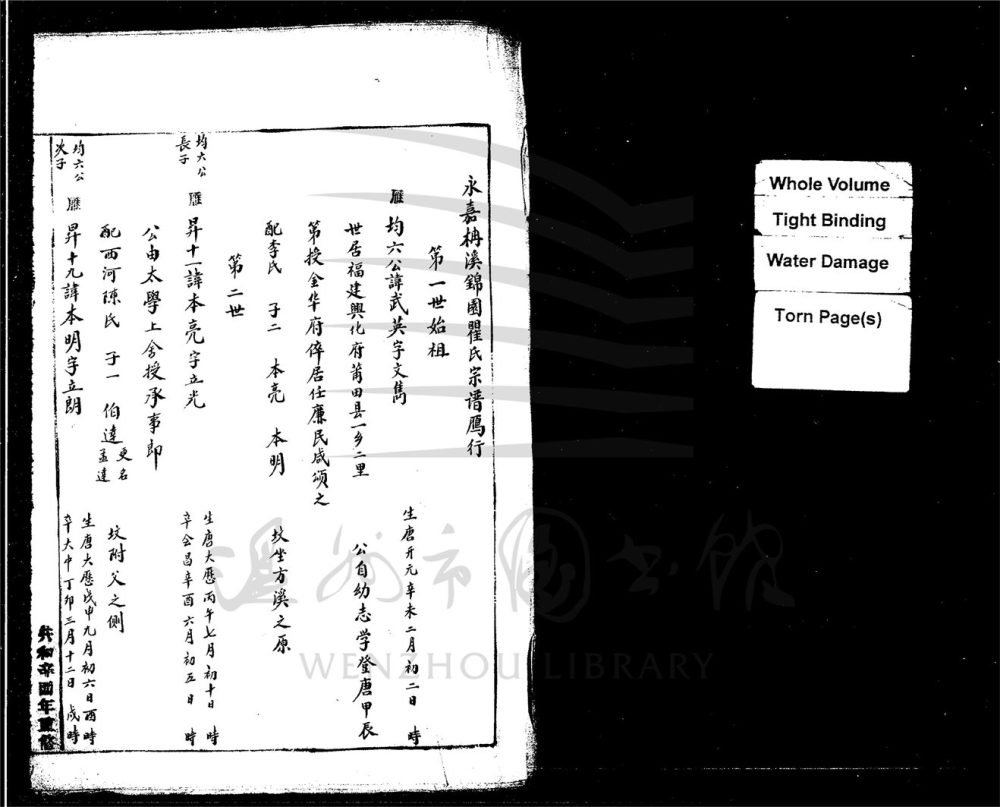 永嘉柟溪錦園瞿氏宗谱鴈行
第一世始祖
雁 均六公諱武英字文雋
生唐开元辛未二月初二日 時
世居福建興化府莆田县一乡二里
公自幼志学登唐甲辰
第授金华府倅居任廉民咸颂之
配李氏 子二 本亮 本明
坟坐方溪之原
第二世
均六公
長子
雁 昇十一諱本亮字立光
生唐大歷丙午七月初十日 時
卒会昌辛酉六月初五日 時
公由太學上舍授承事郎
配西河陳氏 子一 伯達
更名
孟達
坟附父之側
均六公
次子
雁 昇十九諱本明字立朗
生唐大歷戊申九月初六日酉時
卒大中丁卯三月十二日 戌時
共和辛酉年重修
温州市图书馆
WENZHOU LIBRARY
Whole Volume
Tight Binding
Water Damage
Torn Page(s)